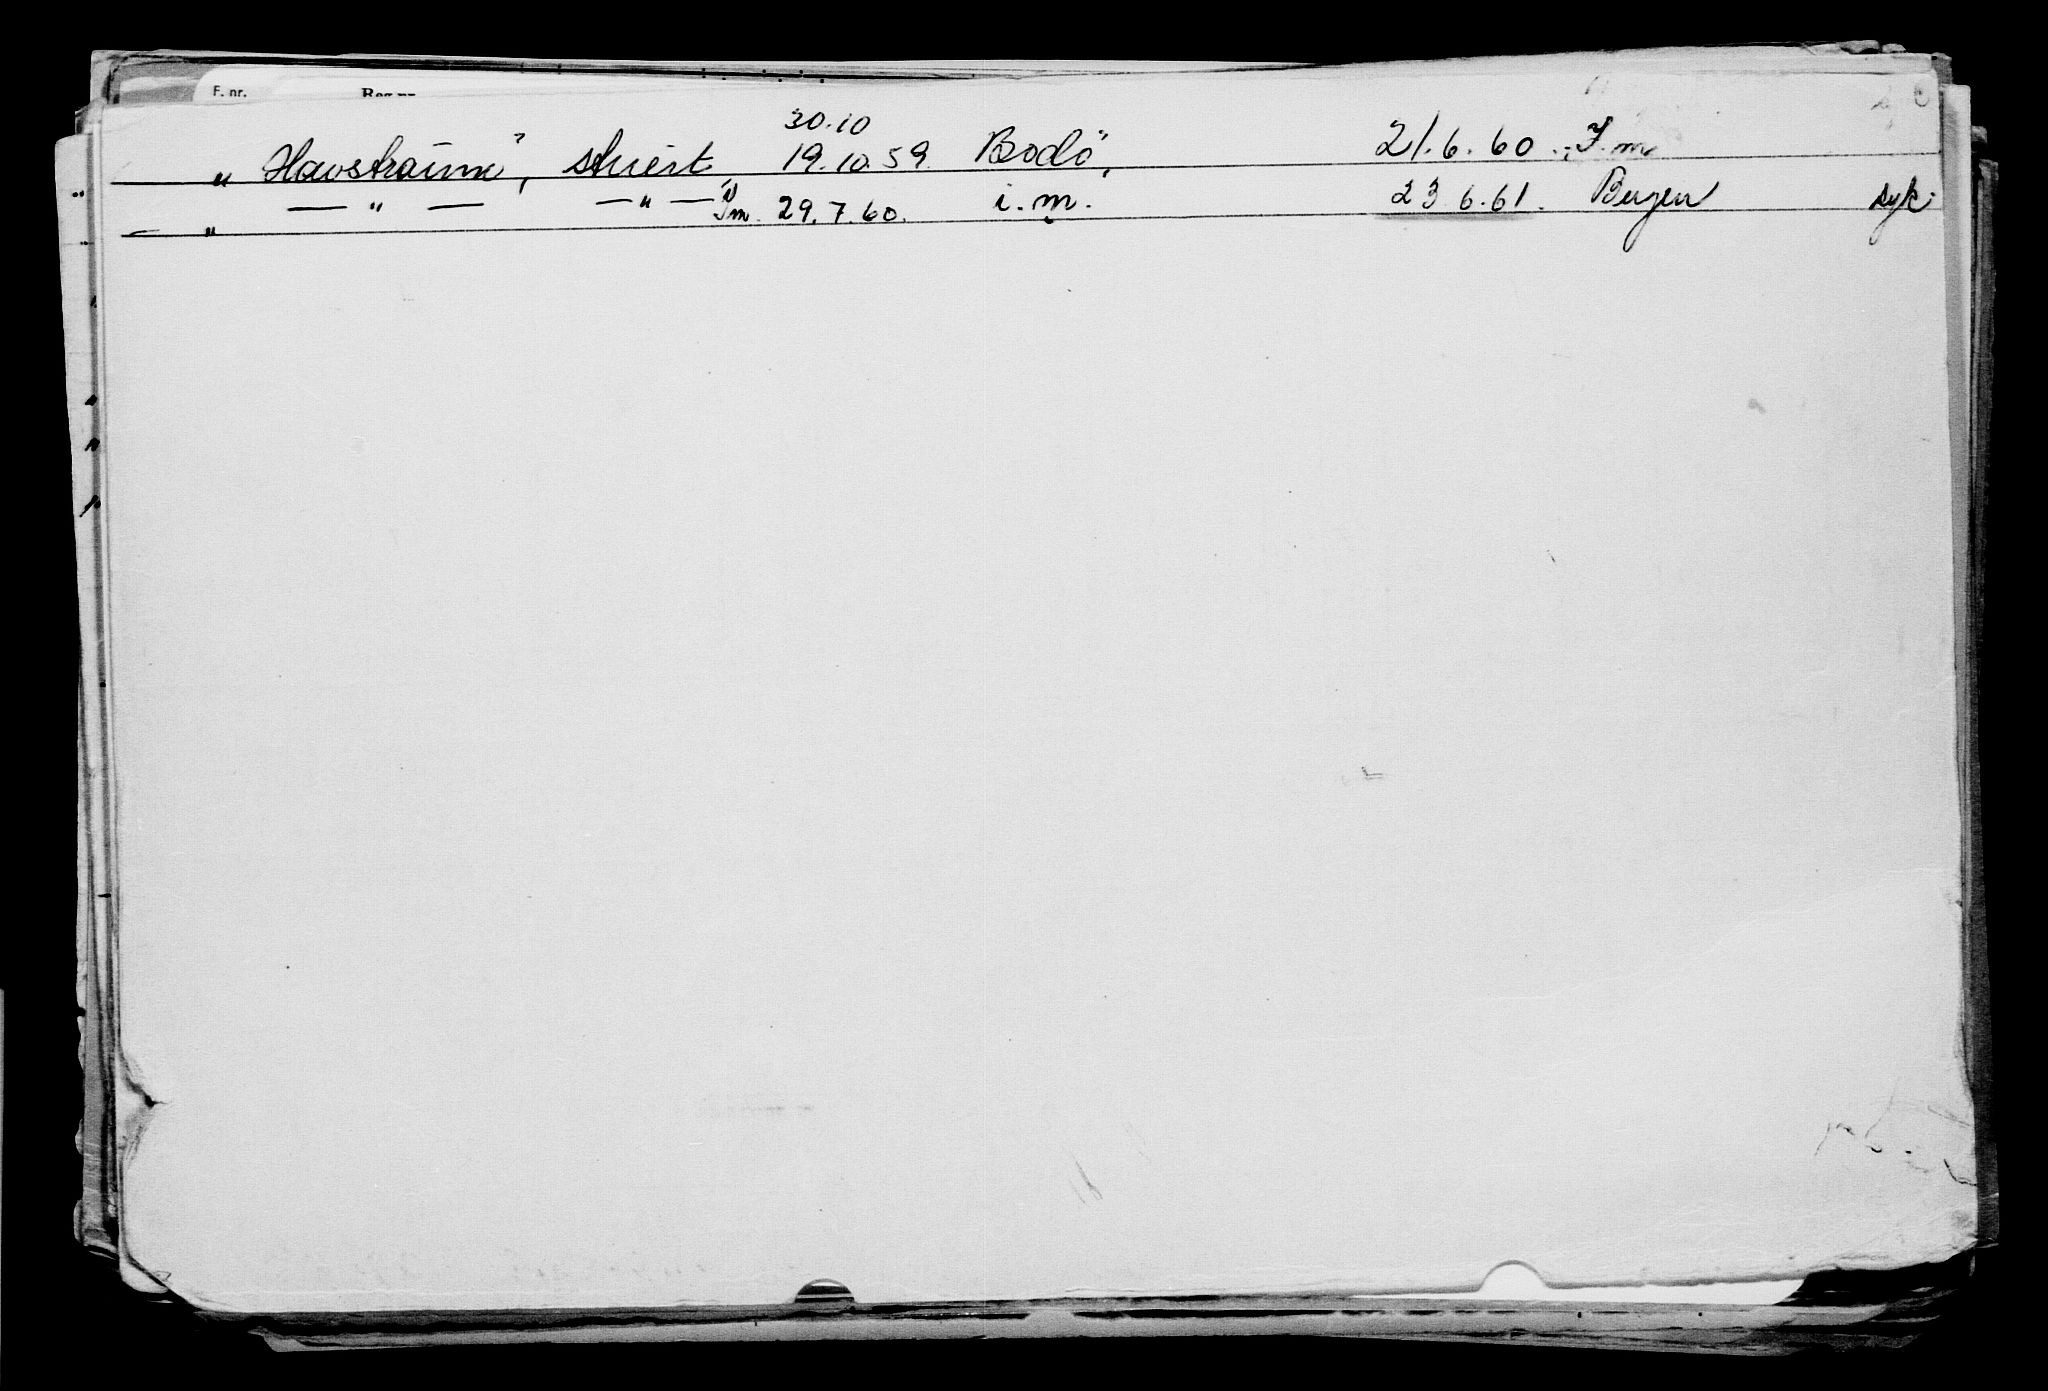 F. nr. Reg.nr.
30.10
„ Havstraum", stuert 19.10.59. Bodö, 21.6.60. I.m
— „ — — „ — Im. 29.7.60. i.m. 23.6.61. Bergen syk.
„